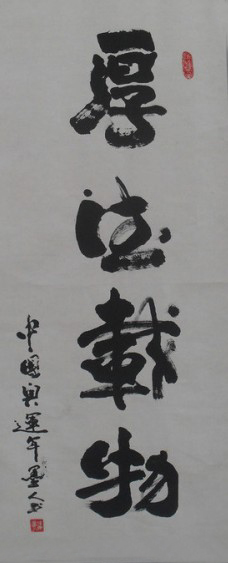 厚德載物
中國奥運年墨人书